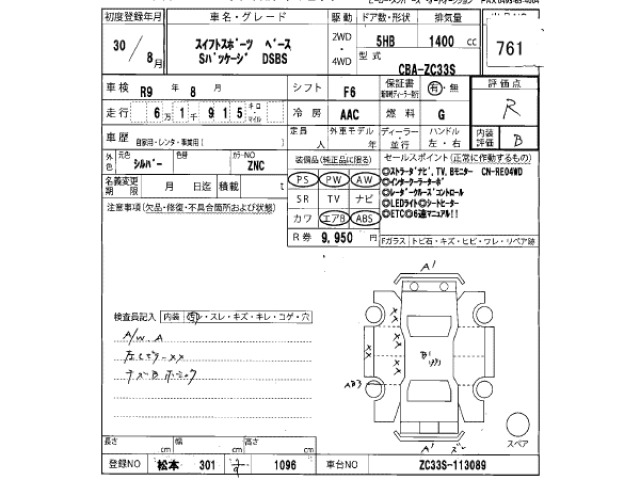 初度登録年月 車名・グレード 駆動 ドア数・形状 排気量
30 / 8月 スイフトスポーツ ベース 2WD 5HB 1400 cc 761
Sパッケージ DSBS 4WD 型式 CBA-ZC33S
車検 R9 年 8 月 シフト F6 保証書 有・無 評価点
走行 6万1千915 キロ・マイル 冷房 AAC 燃料 G R
車歴 自家用・レンタ・事業用( ) 定員 人 外車モデル 年 ディーラー・並行 ハンドル 左・右 内装評価 B
外色 元色 シルバー 色替 カラーNO ZNC 装備品(純正品に限る) セールスポイント(正常に作動するもの)
名義変更期限 月 日迄 積載 t PS PW AW ◎ストラーダナビ,TV,Bモニター CN-RE04WD
◎インタークーラーターボ
注意事項(欠品・修復・不具合箇所および状態) SR TV ナビ ◎レーダークルーズコントロール
◎LEDライト◎シートヒーター
カワ エアB ABS ◎ETC◎6速マニュアル!!
R券 9,950 円 Fガラス トビ石・キズ・ヒビ・ワレ・リペア跡
A'
検査員記入 内装 汚・スレ・キズ・キレ・コゲ・穴
A/W A
XX
B'
AB3
A'
スペア
長さ cm 幅 cm 高さ cm
登録NO 松本 301 す 1096 車台NO ZC33S-113089